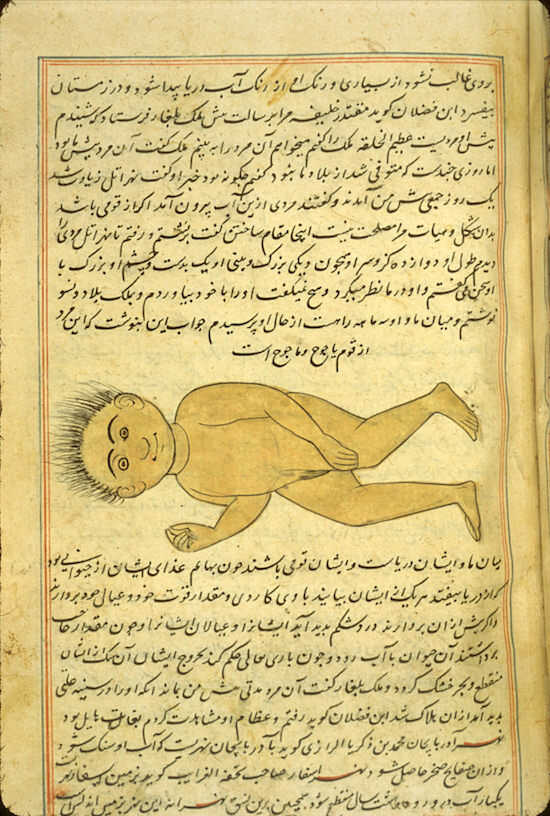 بروی غالب نشود از بسیاری و رنگ او از رنک آب دریا پیدا شود و در زمستان
بیفسرد ابن فضلان کوید مقتدر خلیفه مرا برسالت پیش ملک بلغار فرستاد که شنیدم
پیش او مردیست عظیم الخلقه ملک را کفتم میخواهم آن مرد را به بینم ملک کفت آن مرد پیش ما بود
اما روزی چندست که متوفی شد از بلاد ما نبود کفتم چکونه بود خبر او کفت نهر اتل زیادت شد
یک روز جمعی پیش من آمدند و کفتند مردی ازین آب بیرون آمد اکر از قومی باشد
بدان شکل و هیات ما را مصلحت نیست اینجا مقام ساختن کفت برنشستم و رفتم تا نهر اتل مردی را
دیدم طول او دوازده کز و سر او همچون دیکی بزرک و بینی او یک بدست و چشم او بزرک با
او سخن می کفتم و او در ما نظر میکرد و هیچ نمیکفت او را با خود بیاوردم و بملک بلاد ویسو
نوشتم و میان ما و او سه ماهه راهست از حال او پرسیدم جواب این بنوشت که این مرد
از قوم یاجوج و ماجوج است
میان ما و ایشان دریاست و ایشان قومی باشند چون بهایم غذای ایشان از حیوانی بود
که از دریا بیفتد هر یک از ایشان بیایند با وی کاردی و مقدار قوت خود و عیال خود بردارند
و اکر بیش از آن بردارند درد شکم پدید آید ایشانرا و عیالان ایشانرا و چون مقدار حاجت
برداشتند آن حیوان با آب رود و چون باری تعالی حکم کند بخروج ایشان آن سمک از ایشان
منقطع و بحر خشک کردد و ملک بلغار کفت آن مرد مدتی پیش من بماند آنکه او را در سینه علتی
پدید آمد از آن هلاک شد ابن فضلان کوید رفتم و عظام او مشاهدت کردم بغایت هایل بود
نهر آذربایجان محمد بن زکریا الرازی کوید باذربایجان نهریست که آب او سنک شود
و از آن صفایح صخر حاصل شود نهر اسفار صاحب تحفة الغرایب کوید بزمین اسفار نهریست
یکسال آب در رود و هشت سال منقطع شود همچنین برین نسق نهر این نهر بزمین اندلس است